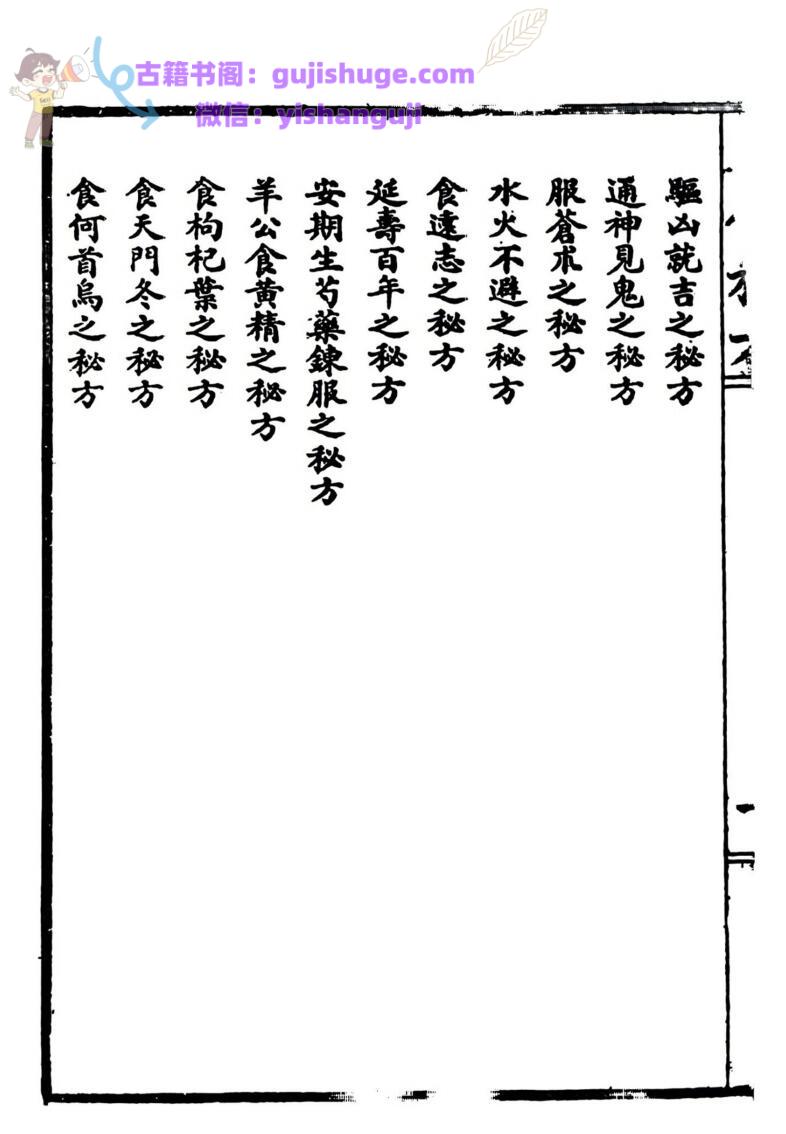 古籍书阁：gujishuge.com
微信：yishanguji
驅凶就吉之秘方
通神見鬼之秘方
服蒼朮之秘方
水火不避之秘方
食遠志之秘方
延壽百年之秘方
安期生芍藥鍊服之秘方
羊公食黃精之秘方
食枸杞葉之秘方
食天門冬之秘方
食何首烏之秘方